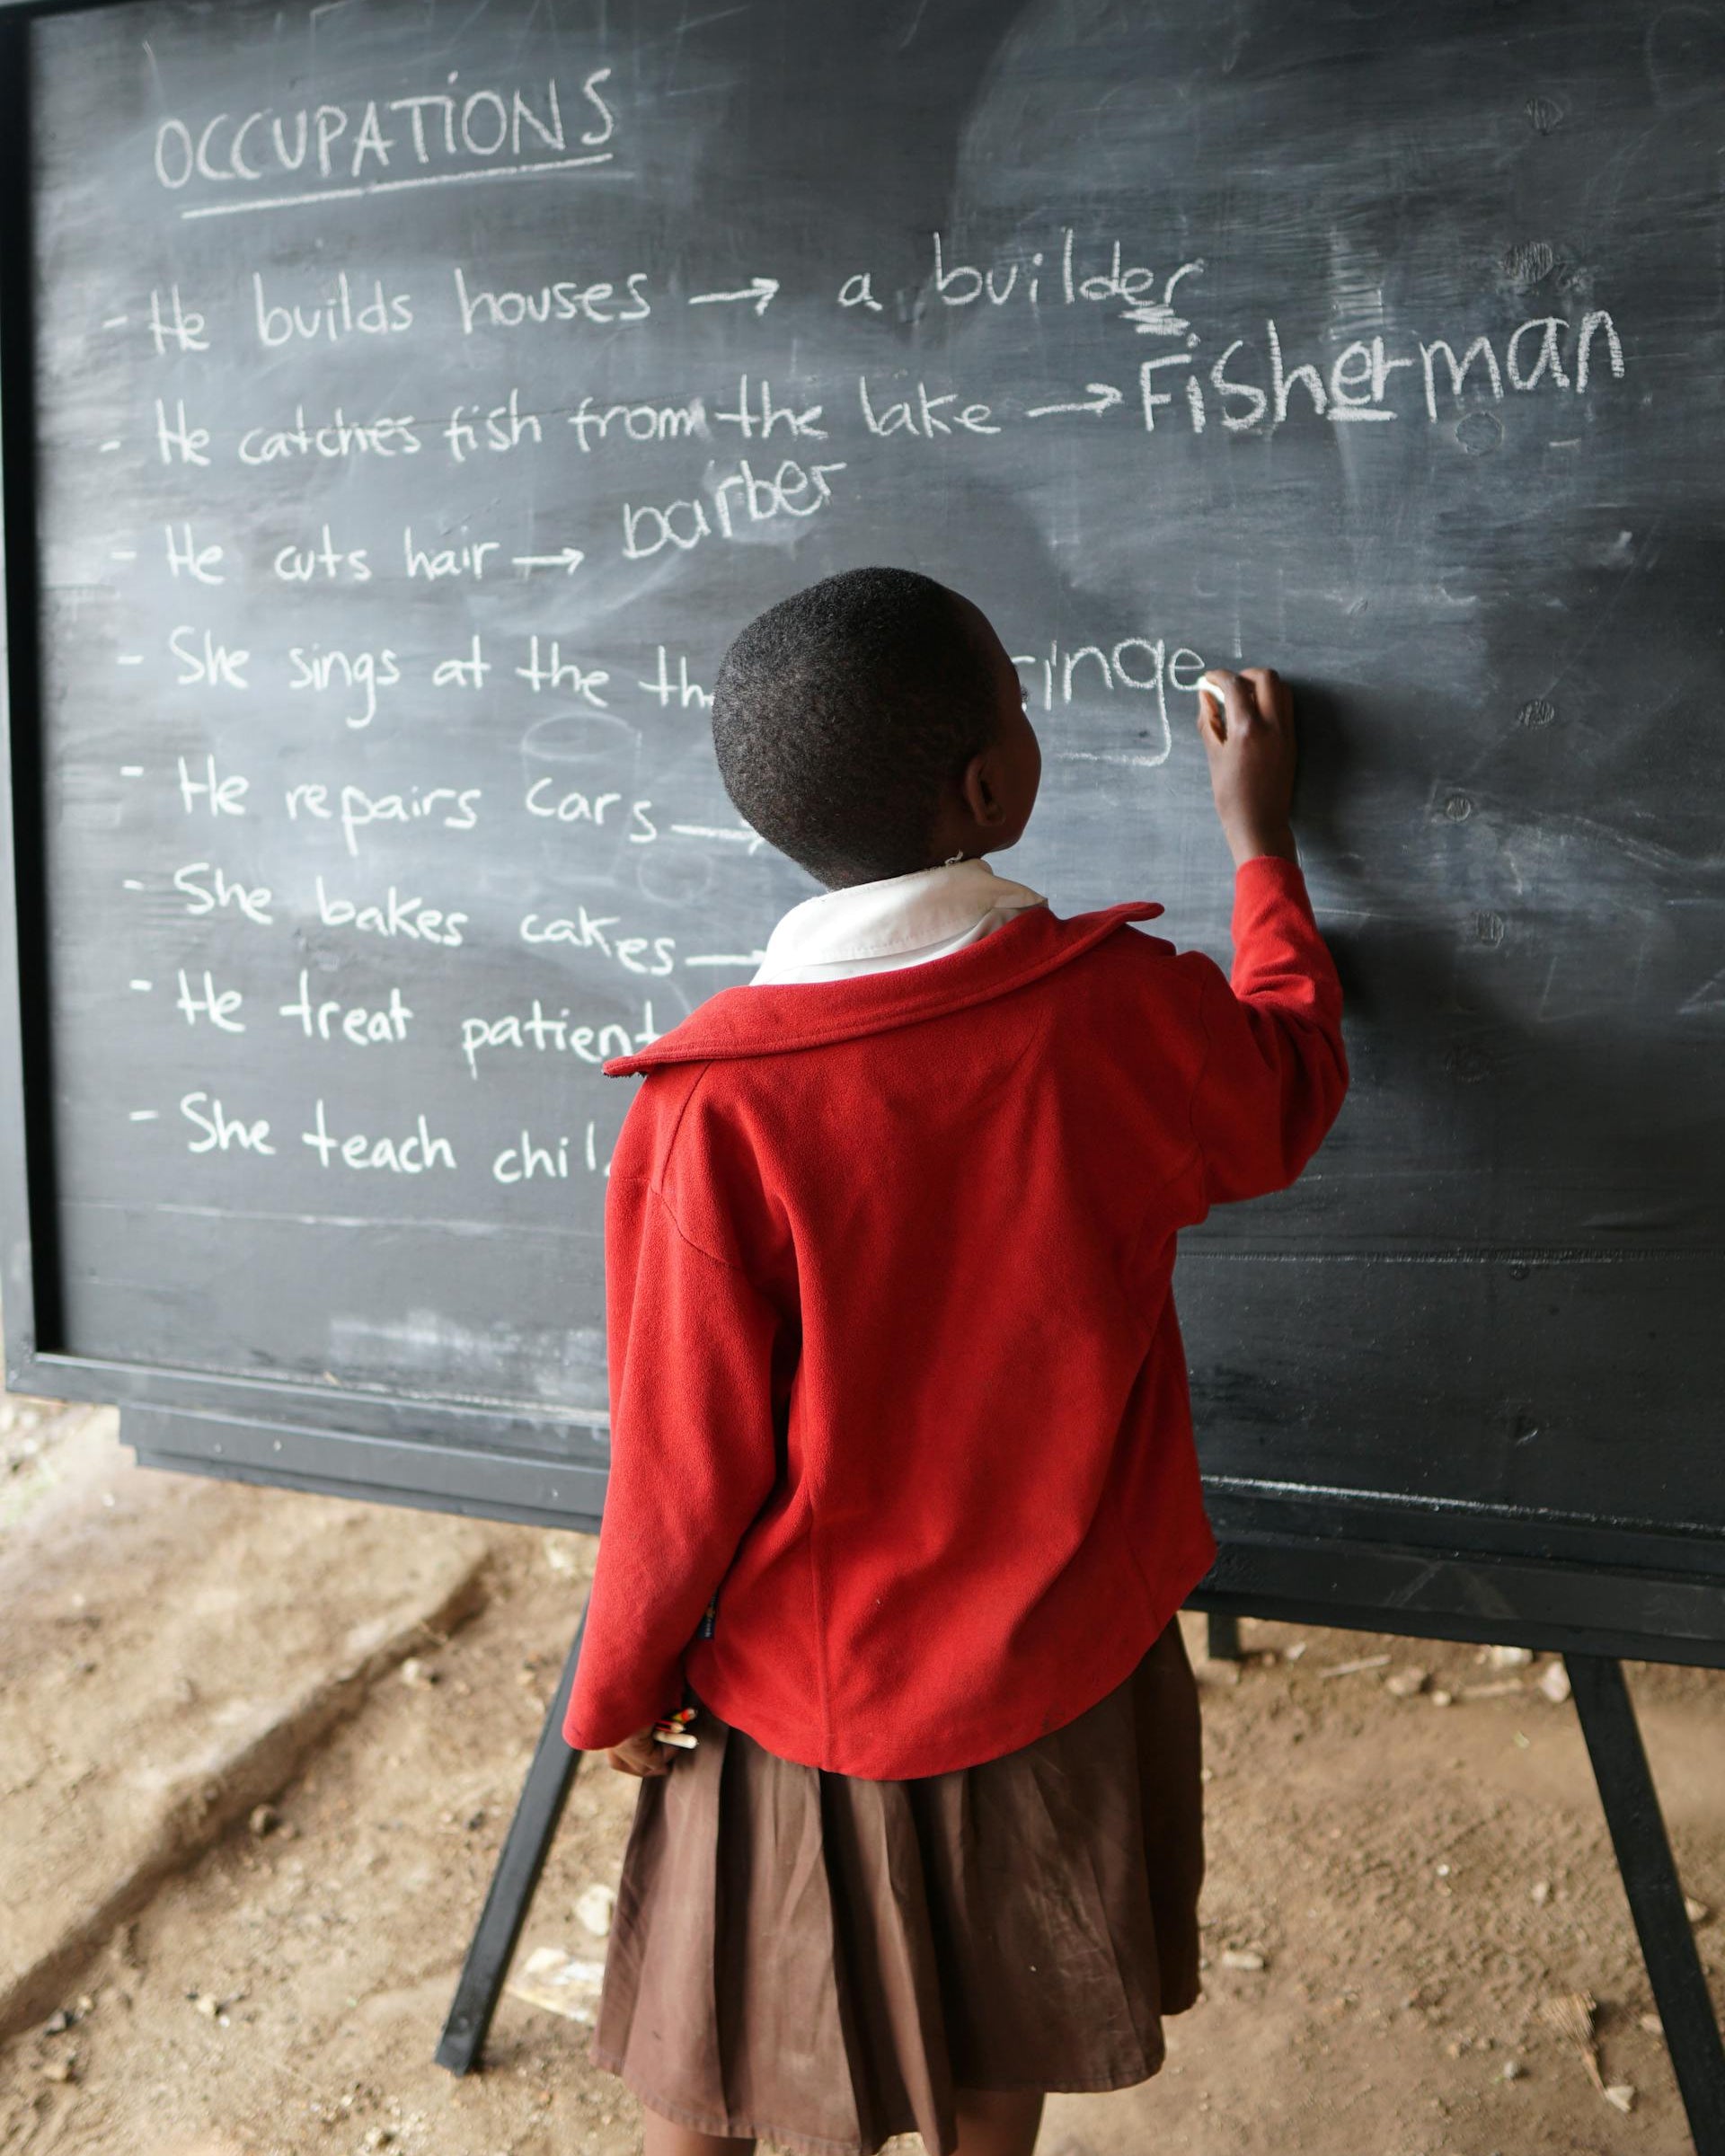 OCCUPATIONS
- He builds houses → a builder
- He catches fish from the lake → Fisherman
- He cuts hair → barber
- She sings at the
- He repairs cars →
- She bakes cakes →
- He treat
- She teach